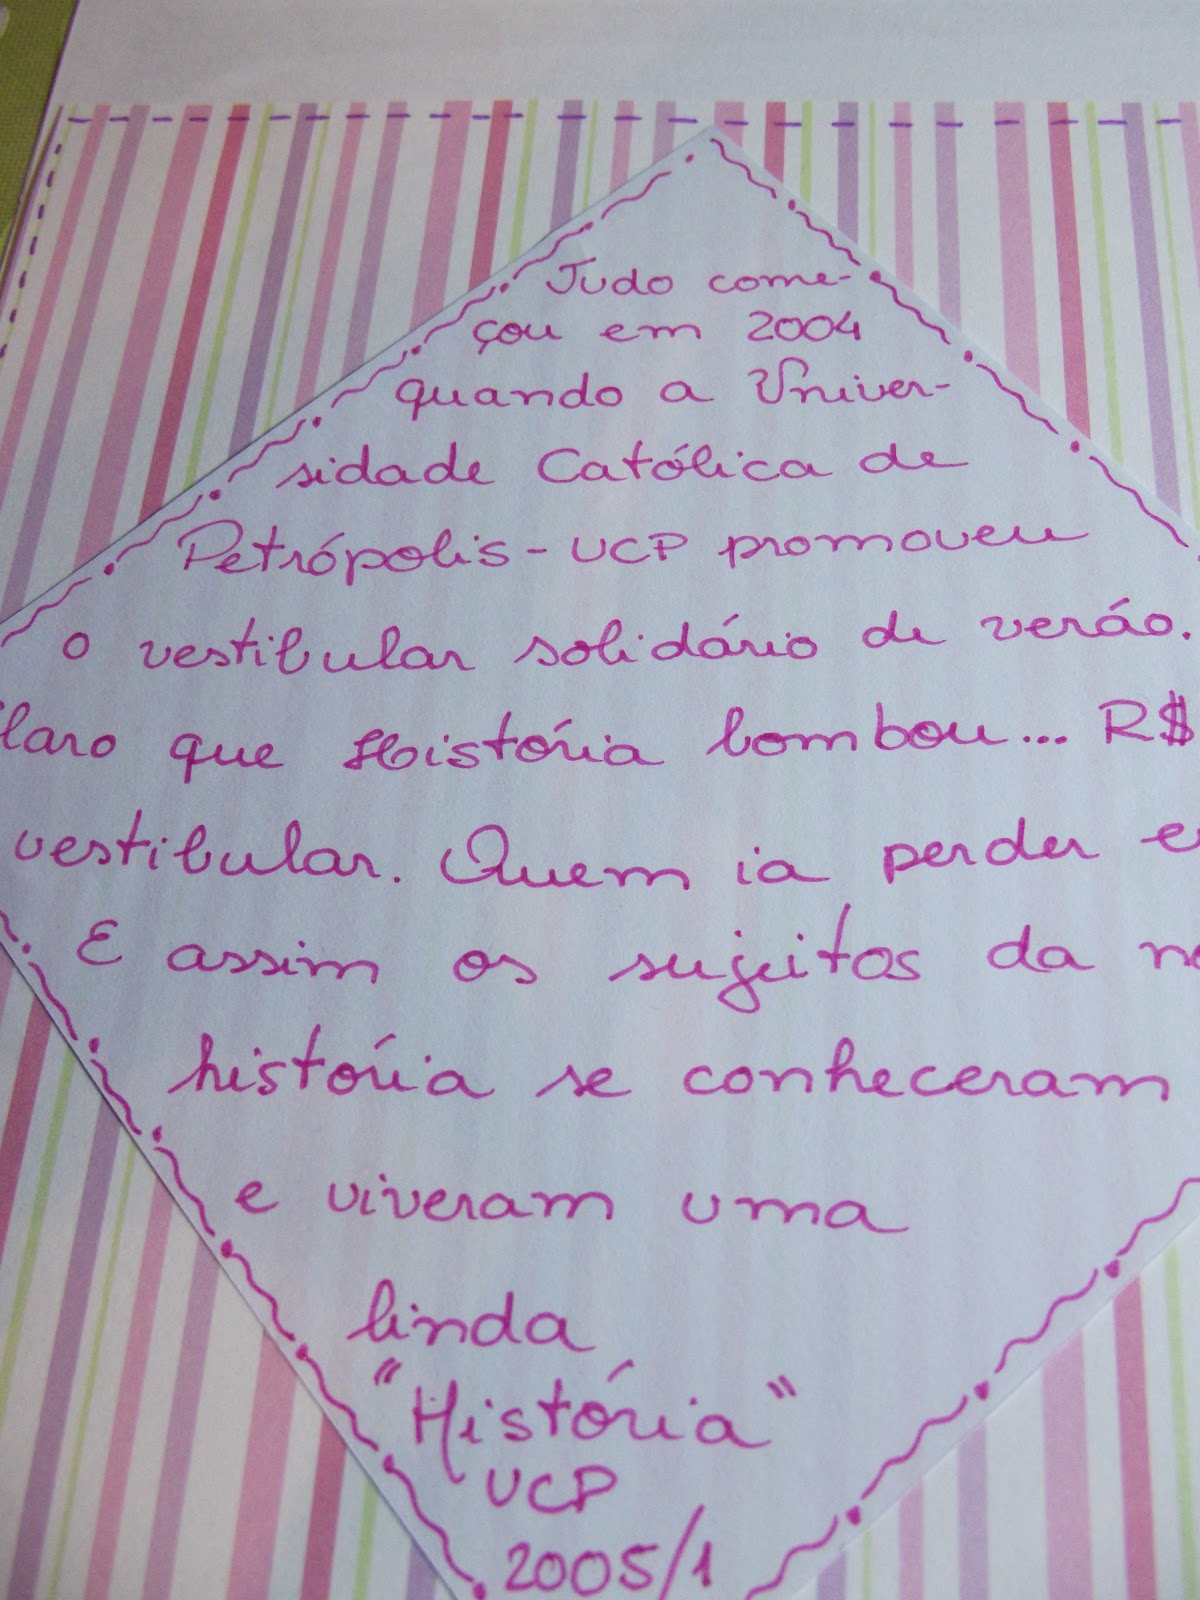 Tudo come-
çou em 2004
quando a Univer-
sidade Católica de
Petrópolis - UCP promoveu
o vestibular solidário de verão.
laro que História bombou... R$
vestibular. Quem ia perder e
E assim os sujeitos da
história se conheceram
e viveram uma
linda
"História"
UCP
2005/1